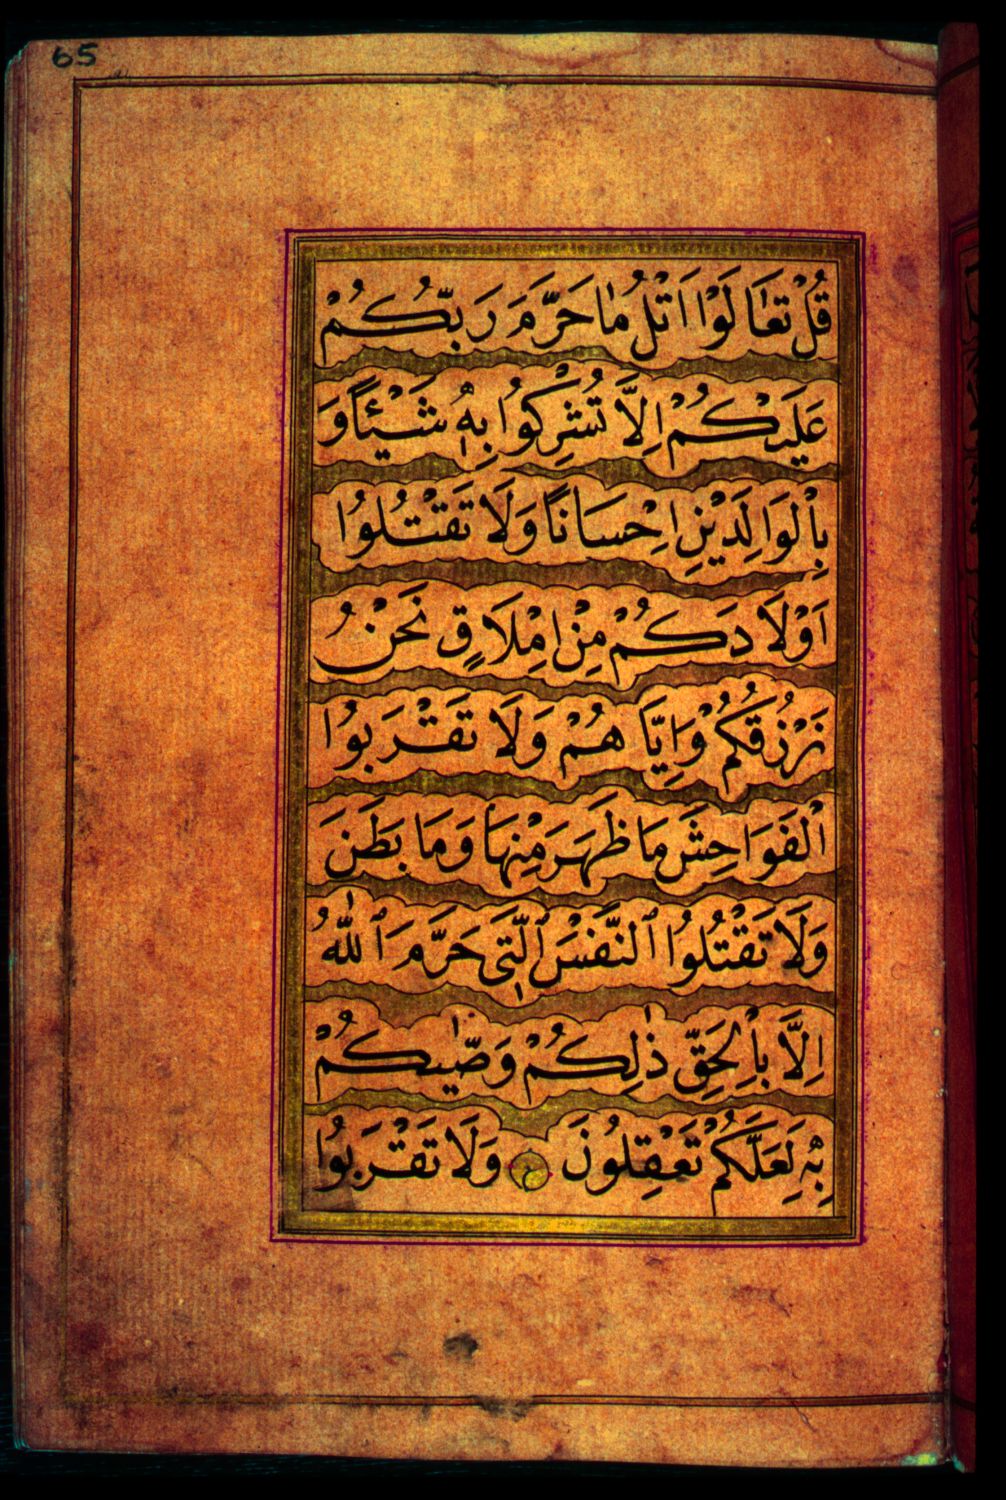 65
قُلْ تَعَالَوْا اَتْلُ مٰا حَرَّمَ رَبُّكُمْ
عَلَيْكُمْ اِلَّا تُشْرِكُوا بِهٖ شَيْئًا وَ
بِالْوَالِدَيْنِ اِحْسَانًا وَلَا تَقْتُلُوا
اَوْلَادَكُمْ مِنْ اِمْلَاقٍ نَحْنُ
نَرْزُقُكُمْ وَاِيَّاهُمْ وَلَا تَقْرَبُوا
الْفَوَاحِشَ مَا ظَهَرَ مِنْهَا وَمَا بَطَنَ
وَلَا تَقْتُلُوا ٱلنَّفْسَ ٱلَّتٖى حَرَّمَ ٱللّٰهُ
اِلَّا بِالْحَقِّ ذٰلِكُمْ وَصّٰيكُمْ
بِهٖ لَعَلَّكُمْ تَعْقِلُونَ وَلَا تَقْرَبُوا